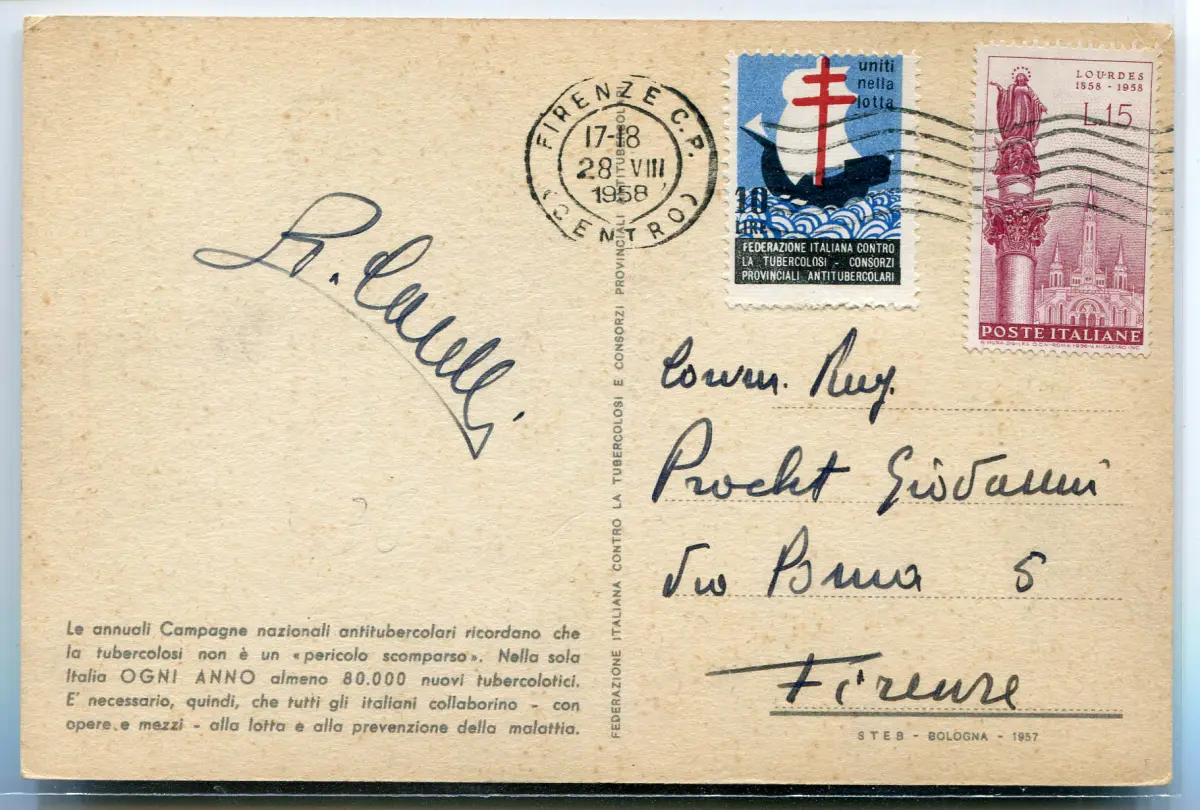 FIRENZE C.P.
17-18
28 VIII
1958
(CENTRO)
uniti
nella
lotta
10
LIRE
FEDERAZIONE ITALIANA CONTRO
LA TUBERCOLOSI - CONSORZI
PROVINCIALI ANTITUBERCOLARI
LOURDES
1858 - 1958
L.15
POSTE ITALIANE
Comm. Rag.
Giovanni
Via 5
Firenze
STEB - BOLOGNA - 1957
FEDERAZIONE ITALIANA CONTRO LA TUBERCOLOSI E CONSORZI PROVINCIALI ANTITUBERCOLARI
Le annuali Campagne nazionali antitubercolari ricordano che
la tubercolosi non è un «pericolo scomparso». Nella sola
Italia OGNI ANNO almeno 80.000 nuovi tubercolotici.
E' necessario, quindi, che tutti gli italiani collaborino - con
opere e mezzi - alla lotta e alla prevenzione della malattia.